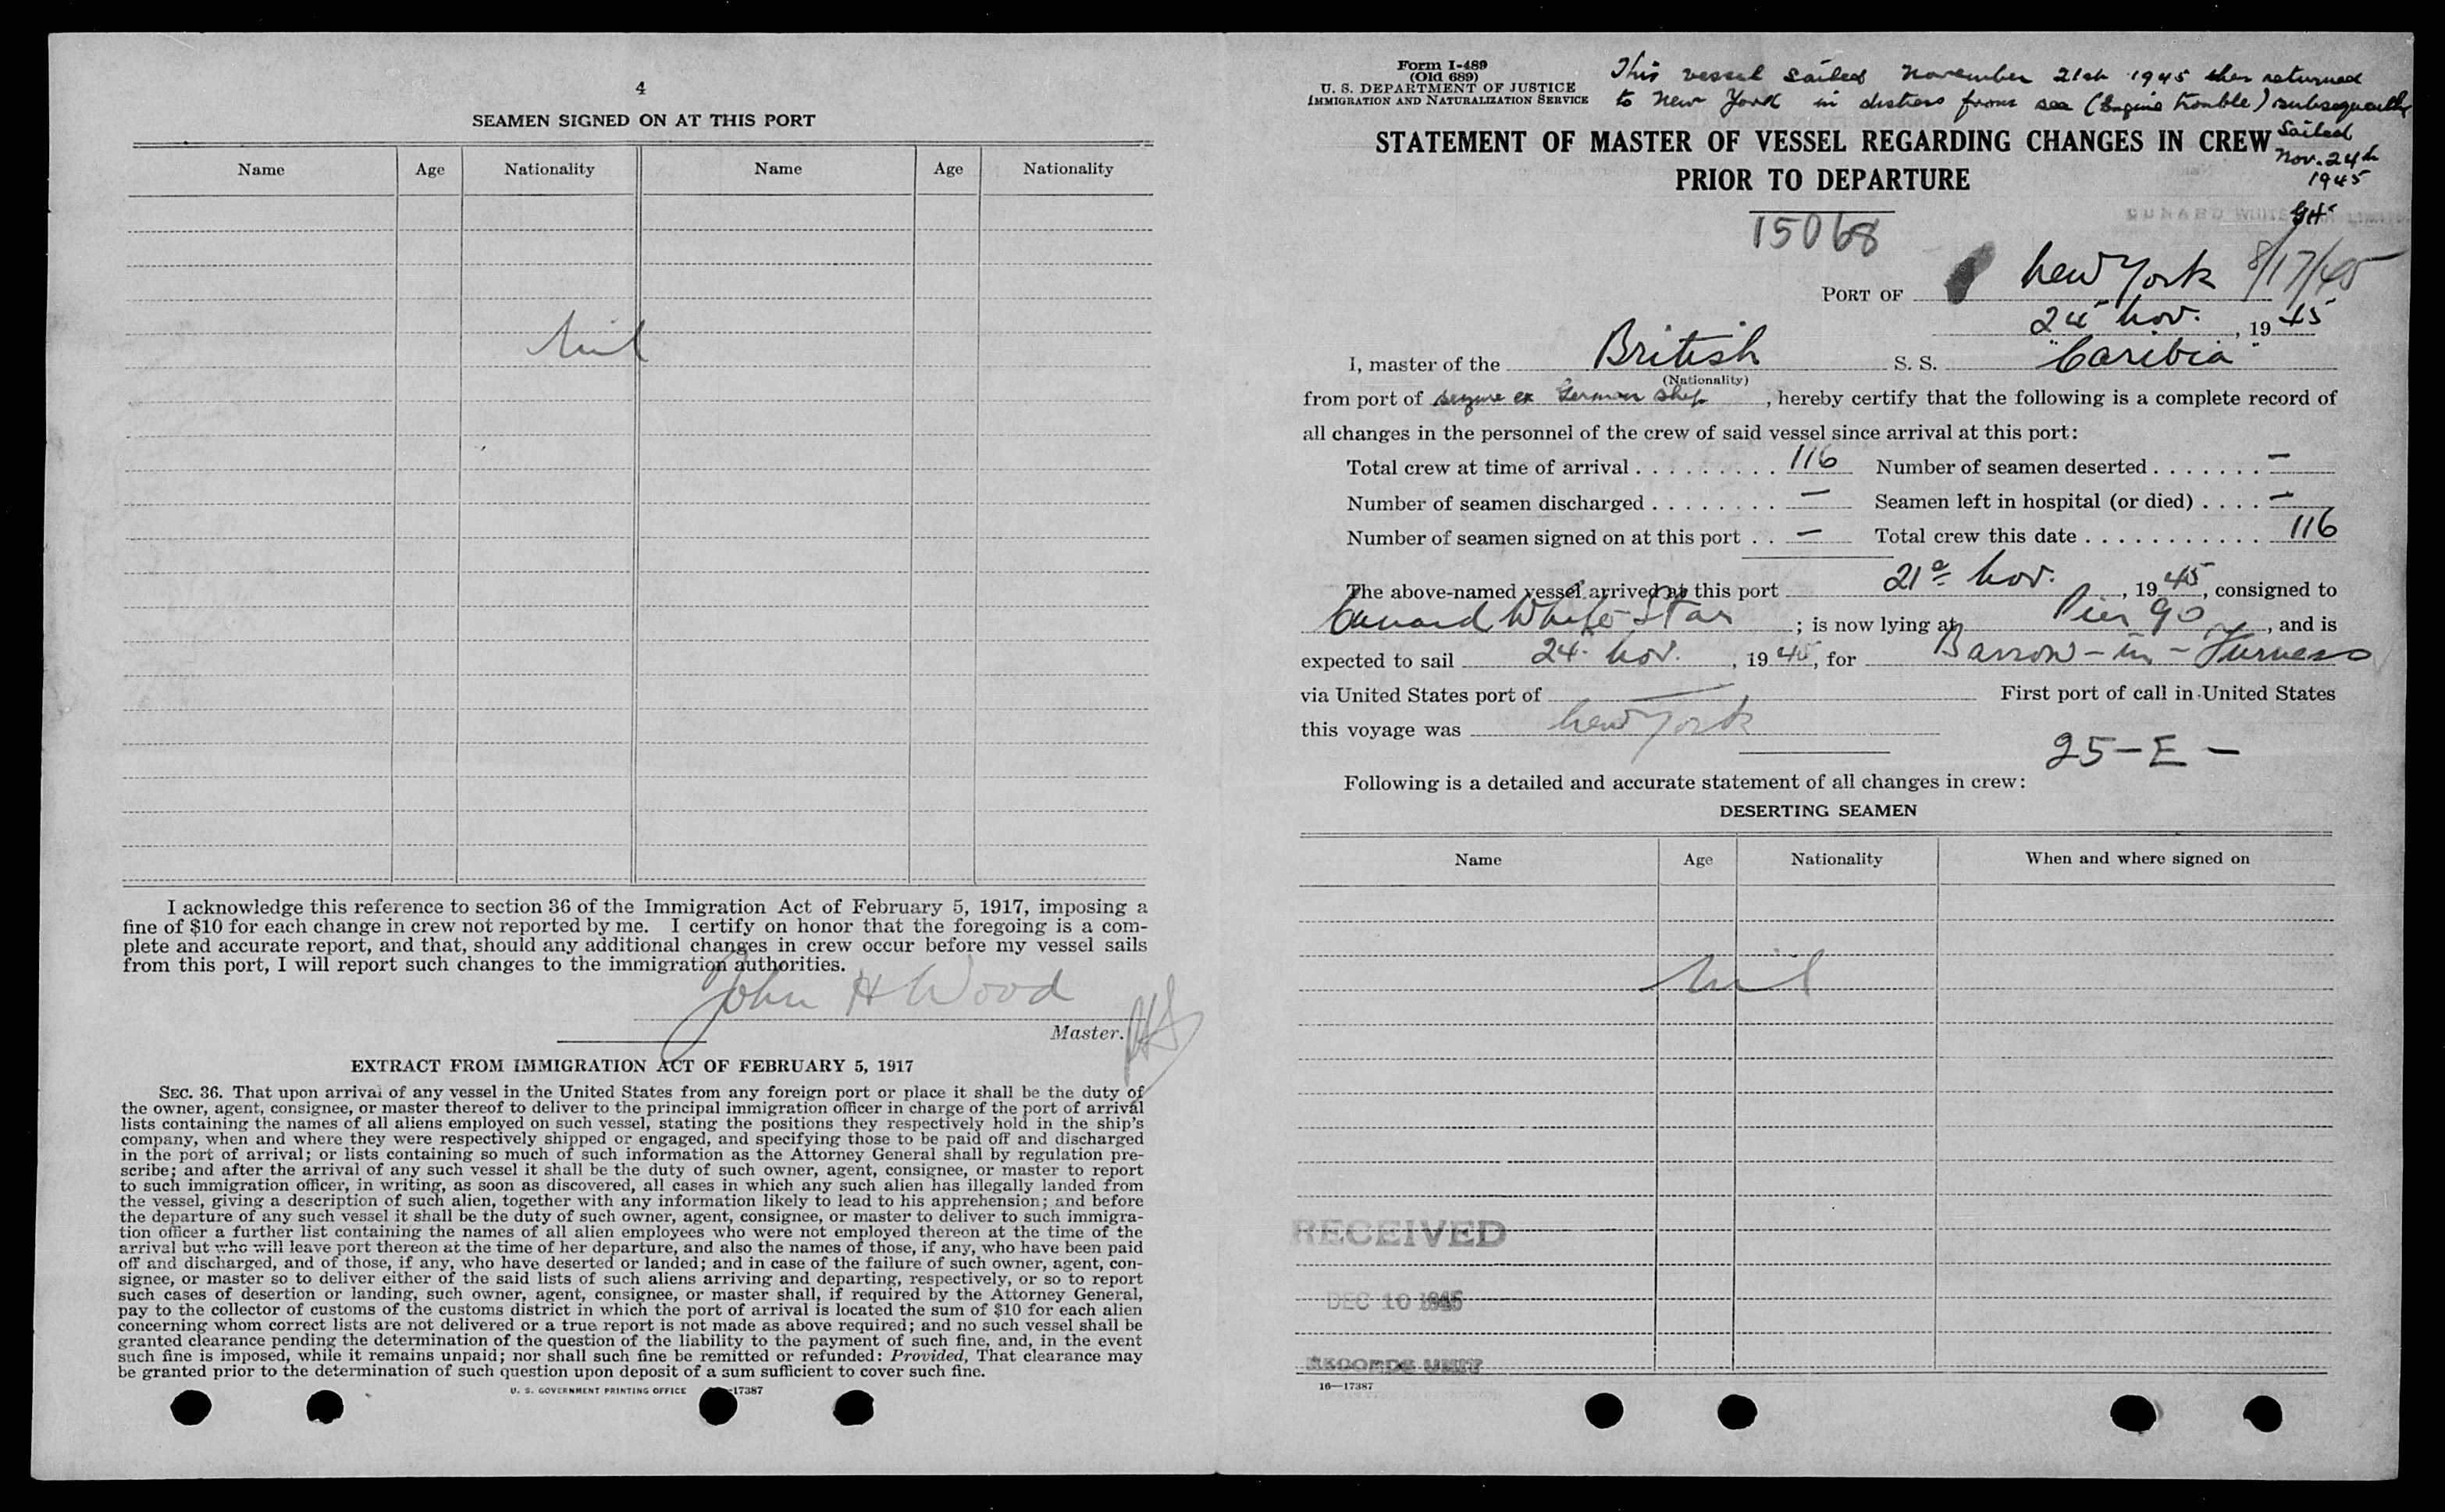 4
SEAMEN SIGNED ON AT THIS PORT
Name Age Nationality Name Age Nationality
Nil
I acknowledge this reference to section 36 of the Immigration Act of February 5, 1917, imposing a
fine of $10 for each change in crew not reported by me. I certify on honor that the foregoing is a com-
plete and accurate report, and that, should any additional changes in crew occur before my vessel sails
from this port, I will report such changes to the immigration authorities.
John H Wood
Master.
EXTRACT FROM IMMIGRATION ACT OF FEBRUARY 5, 1917
SEC. 36. That upon arrival of any vessel in the United States from any foreign port or place it shall be the duty of
the owner, agent, consignee, or master thereof to deliver to the principal immigration officer in charge of the port of arrival
lists containing the names of all aliens employed on such vessel, stating the positions they respectively hold in the ship's
company, when and where they were respectively shipped or engaged, and specifying those to be paid off and discharged
in the port of arrival; or lists containing so much of such information as the Attorney General shall by regulation pre-
scribe; and after the arrival of any such vessel it shall be the duty of such owner, agent, consignee, or master to report
to such immigration officer, in writing, as soon as discovered, all cases in which any such alien has illegally landed from
the vessel, giving a description of such alien, together with any information likely to lead to his apprehension; and before
the departure of any such vessel it shall be the duty of such owner, agent, consignee, or master to deliver to such immigra-
tion officer a further list containing the names of all alien employees who were not employed thereon at the time of the
arrival but who will leave port thereon at the time of her departure, and also the names of those, if any, who have been paid
off and discharged, and of those, if any, who have deserted or landed; and in case of the failure of such owner, agent, con-
signee, or master so to deliver either of the said lists of such aliens arriving and departing, respectively, or so to report
such cases of desertion or landing, such owner, agent, consignee, or master shall, if required by the Attorney General,
pay to the collector of customs of the customs district in which the port of arrival is located the sum of $10 for each alien
concerning whom correct lists are not delivered or a true report is not made as above required; and no such vessel shall be
granted clearance pending the determination of the question of the liability to the payment of such fine, and, in the event
such fine is imposed, while it remains unpaid; nor shall such fine be remitted or refunded: Provided, That clearance may
be granted prior to the determination of such question upon deposit of a sum sufficient to cover such fine.
U. S. GOVERNMENT PRINTING OFFICE -17387
Form I-489
(Old 689)
U. S. DEPARTMENT OF JUSTICE
IMMIGRATION AND NATURALIZATION SERVICE
This vessel sailed November 21st 1945 then returned
to New York in distress from sea (Engine trouble) subsequently
sailed
Nov. 24th
1945
GH
STATEMENT OF MASTER OF VESSEL REGARDING CHANGES IN CREW
PRIOR TO DEPARTURE
CUNARD WHITE
15068
PORT OF New York 8/17/45
24 Nov. , 19 45
I, master of the British S. S. "Caribia"
(Nationality)
from port of seizure ex German ship , hereby certify that the following is a complete record of
all changes in the personnel of the crew of said vessel since arrival at this port:
Total crew at time of arrival . . . . . . . . . 116 Number of seamen deserted . . . . . . . —
Number of seamen discharged . . . . . . . . — Seamen left in hospital (or died) . . . . —
Number of seamen signed on at this port . . — Total crew this date . . . . . . . . . . . 116
The above-named vessel arrived at this port 21st Nov. , 19 45, consigned to
Cunard White Star ; is now lying at Pier 90 , and is
expected to sail 24 Nov. , 19 45, for Barrow-in-Furness
via United States port of — First port of call in United States
this voyage was New York
25-E-
Following is a detailed and accurate statement of all changes in crew:
DESERTING SEAMEN
Name Age Nationality When and where signed on
Nil
RECEIVED
DEC 10 1945
RECORDS UNIT
16—17387